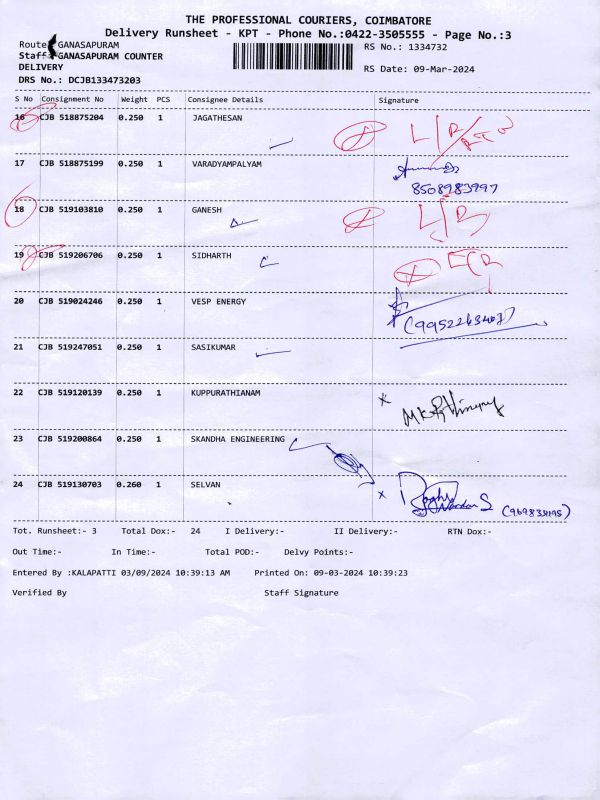 THE PROFESSIONAL COURIERS, COIMBATORE
Delivery Runsheet - KPT - Phone No.:0422-3505555 - Page No.:3
Route GANASAPURAM RS No.: 1334732
Staff GANASAPURAM COUNTER
DELIVERY RS Date: 09-Mar-2024
DRS No.: DCJB133473203
S No Consignment No Weight PCS Consignee Details Signature
16 CJB 518875204 0.250 1 JAGATHESAN
17 CJB 518875199 0.250 1 VARADYAMPALYAM
8508983997
18 CJB 519103810 0.250 1 GANESH
19 CJB 519206706 0.250 1 SIDHARTH
20 CJB 519024246 0.250 1 VESP ENERGY
21 CJB 519247051 0.250 1 SASIKUMAR
22 CJB 519120139 0.250 1 KUPPURATHIANAM
23 CJB 519200864 0.250 1 SKANDHA ENGINEERING
24 CJB 519130703 0.260 1 SELVAN
Tot. Runsheet:- 3 Total Dox:- 24 I Delivery:- II Delivery:- RTN Dox:-
Out Time:- In Time:- Total POD:- Delvy Points:-
Entered By :KALAPATTI 03/09/2024 10:39:13 AM Printed On: 09-03-2024 10:39:23
Verified By Staff Signature